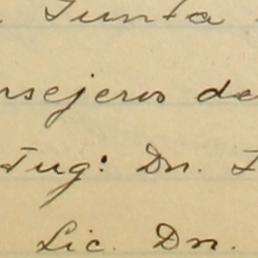 Junta
nsejeros de
Tug: Dn.
Lic. Dn.